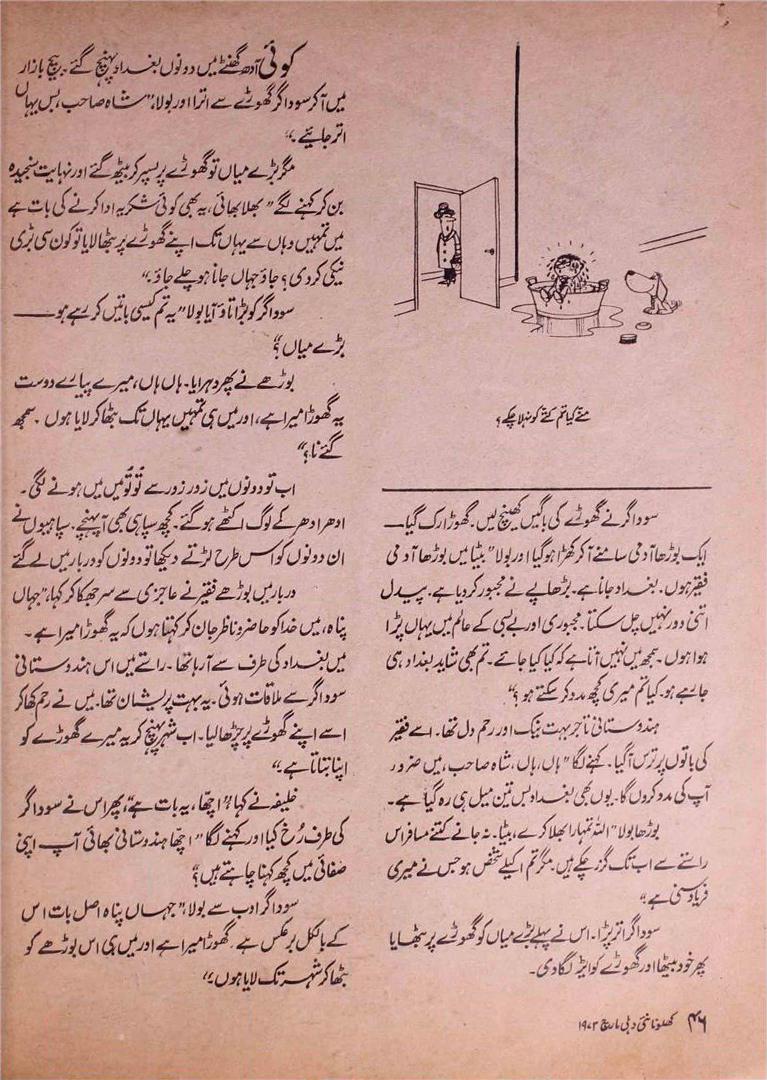 منّے کیا تم کتّے کو نہلا چکے؟
سوداگر نے گھوڑے کی باگیں کھینچ لیں۔ گھوڑا رک گیا۔—
ایک بوڑھا آدمی سامنے آکر کھڑا ہوگیا اور بولا "بیٹا میں بوڑھا آدمی
فقیر ہوں۔ بغداد جانا ہے۔ بڑھاپے نے مجبور کر دیا ہے۔ پیدل
اتنی دور نہیں چل سکتا۔ مجبوری اور بے بسی کے عالم میں یہاں پڑا
ہوا ہوں۔ سمجھ میں نہیں آتا ہے کہ کیا کیا جائے۔ تم بھی شاید بغداد ہی
جا رہے ہو۔ کیا تم میری کچھ مدد کر سکتے ہو؟"
ہندوستانی تاجر بہت نیک اور رحم دل تھا۔ اسے فقیر
کی باتوں پر ترس آگیا۔ کہنے لگا "ہاں، ہاں، شاہ صاحب، میں ضرور
آپ کی مدد کروں گا۔ یوں بھی بغداد بس تین میل ہی رہ گیا ہے۔
بوڑھا بولا "اللہ تمہارا بھلا کرے، بیٹا۔ نہ جانے کتنے مسافر اس
راستے سے اب تک گزر چکے ہیں۔ مگر تم اکیلے شخص ہو جس نے میری
فریاد سنی ہے"
سوداگر اتر پڑا۔ اس نے پہلے بڑے میاں کو گھوڑے پر بٹھایا
پھر خود بیٹھا اور گھوڑے کو ایڑ لگا دی۔
کوئی آدھ گھنٹے میں دونوں بغداد پہنچ گئے۔ بیچ بازار
میں آکر سوداگر گھوڑے سے اترا اور بولا، "شاہ صاحب، بس یہاں
اتر جائیے۔"
مگر بڑے میاں تو گھوڑے پر پسر کر بیٹھ گئے اور نہایت سنجیدہ
بن کر کہنے لگے "بھلا بھائی، یہ بھی کوئی شکریہ ادا کرنے کی بات ہے
میں تمہیں وہاں سے یہاں تک اپنے گھوڑے پر بٹھا لایا تو کون سی بڑی
نیکی کر دی؟ جاؤ جہاں جانا ہو چلے جاؤ۔"
سوداگر کو بڑا تاؤ آیا بولا "یہ تم کیسی باتیں کر رہے ہو—
بڑے میاں؟"
بوڑھے نے پھر دہرایا۔ ہاں ہاں، میرے پیارے دوست
یہ گھوڑا میرا ہے، اور میں ہی تمہیں یہاں تک بٹھا کر لایا ہوں۔ سمجھ
گئے نا؟"
اب تو دونوں میں زور زور سے تُو تُو میں میں ہونے لگی۔
ادھر ادھر کے لوگ اکٹھے ہوگئے۔ کچھ سپاہی بھی آ پہنچے۔ سپاہیوں نے
ان دونوں کو اس طرح لڑتے دیکھا تو دونوں کو دربار میں لے گئے
دربار میں بوڑھے فقیر نے عاجزی سے سر جھکا کر کہا، "جہاں
پناہ، میں خدا کو حاضر و ناظر جان کر کہتا ہوں کہ یہ گھوڑا میرا ہے۔
میں بغداد کی طرف سے آ رہا تھا۔ راستے میں اس ہندوستانی
سوداگر سے ملاقات ہوئی۔ یہ بہت پریشان تھا۔ میں نے رحم کھا کر
اسے اپنے گھوڑے پر چڑھا لیا۔ اب شہر پہنچ کر یہ میرے گھوڑے کو
اپنا بتاتا ہے۔"
خلیفہ نے کہا، "اچھا، یہ بات ہے"، پھر اس نے سوداگر
کی طرف رُخ کیا اور کہنے لگا "اچھا ہندوستانی بھائی آپ اپنی
صفائی میں کچھ کہنا چاہتے ہیں؟"
سوداگر ادب سے بولا، "جہاں پناہ اصل بات اس
کے بالکل برعکس ہے۔ گھوڑا میرا ہے اور میں ہی اس بوڑھے کو
بٹھا کر شہر تک لایا ہوں۔"
۴۶ کھلونا نئی دہلی مارچ ۱۹۷۳